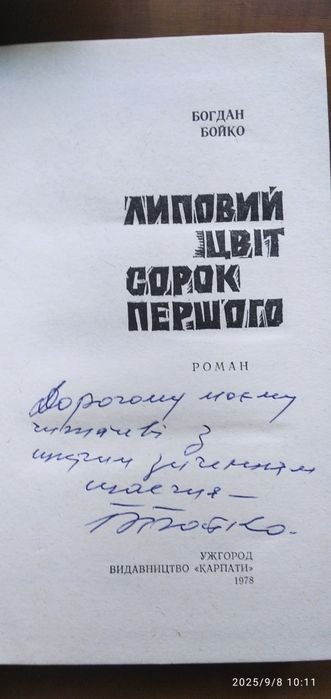 БОГДАН
БОЙКО
ЛИПОВИЙ
ЦВІТ
СОРОК
ПЕРШОГО
РОМАН
Дорогому моєму
читачеві з
щирим зиченням
щастя –
ББойко.
УЖГОРОД
ВИДАВНИЦТВО «КАРПАТИ»
1978
2025/9/8 10:11